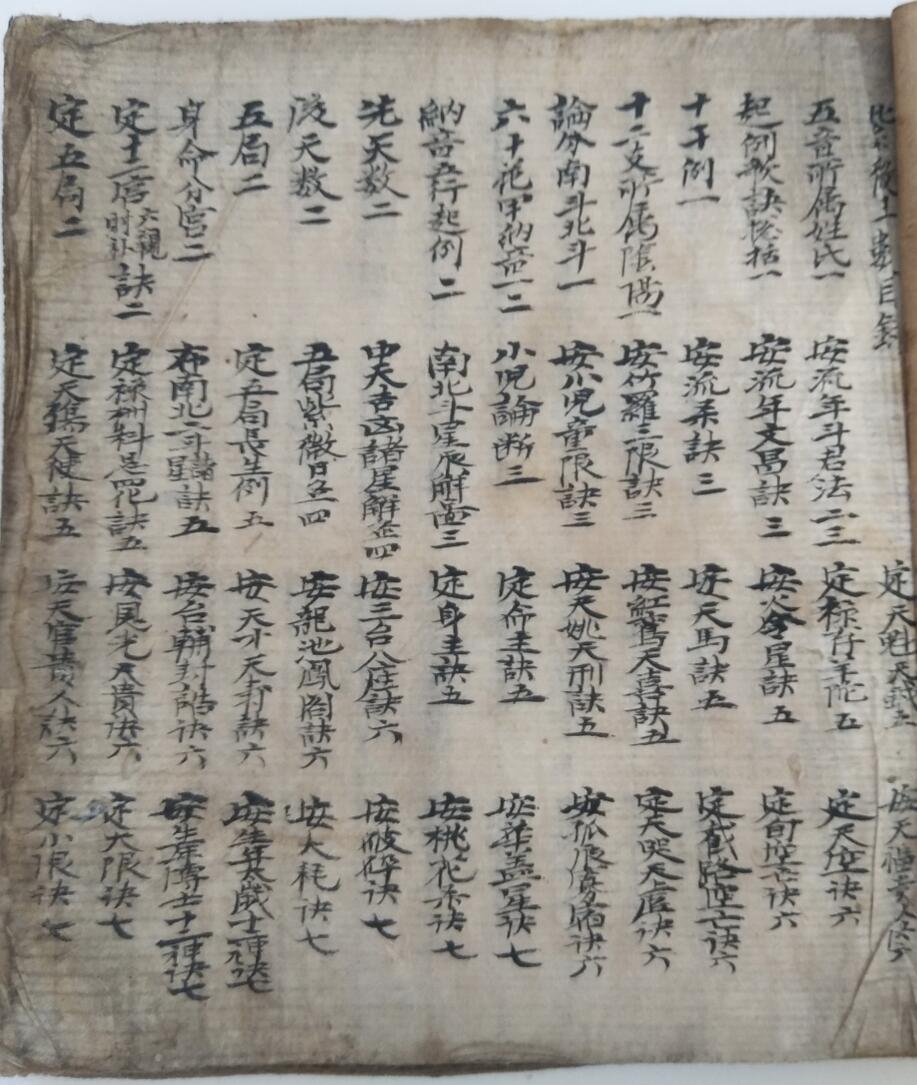 數目錄
五音所属姓氏一
起例歌訣總括一
十干例一
十二支所属陰陽一
論分南斗北斗一
六十花甲納音一二
納音五行起例二
先天数二
後天数二
五局二
身命分宮二
定十二宮六親訣二
定五局二
安流年斗君法二三
安流年文昌訣三
安流 訣三
安竹羅三限訣三
安小児童限訣三
小児論断三
南北斗星辰解 三
中天吉凶諸星解 四
五局紫微日 四
定五局長生例五
布南北二斗諸星訣五
定禄 科忌四化訣五
定天傷天使訣五
定天魁天鉞五
定禄存羊陀五
安火令星訣五
定天馬訣五
安紅鸞天喜訣五
安天姚天刑訣五
定命主訣五
定身主訣五
安三台八座訣六
安龍池鳳閣訣六
安天才天寿訣六
安台輔封誥訣六
安恩光天貴訣六
安天官貴人訣六
安天福貴人訣六
定天空诀六
定旬空亡诀六
定截路空亡诀六
定天哭天虚诀六
安孤辰寡宿诀六
安華盖星诀七
安桃花杀诀七
安破碎诀七
安大耗诀七
安生年太歲十二神诀七
安生年博士十二神诀七
定大限诀七
定小限诀七